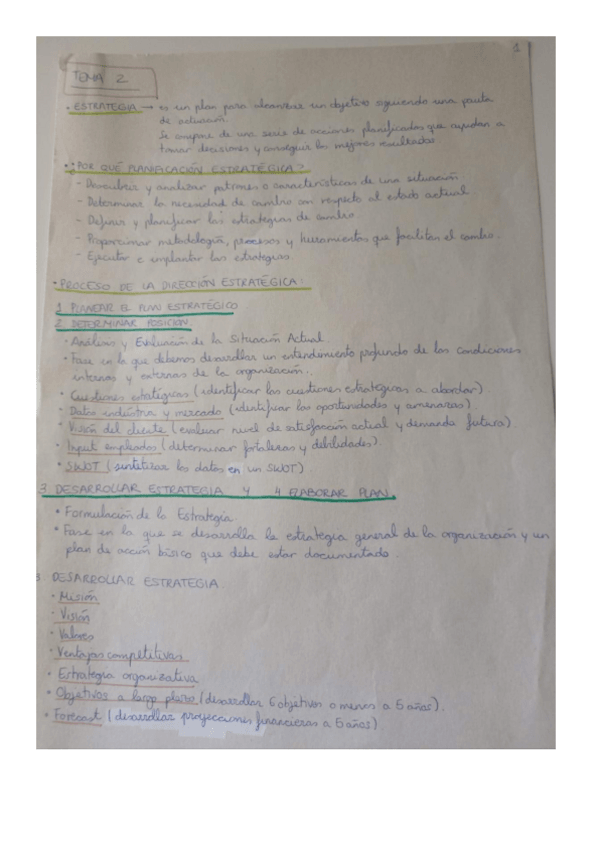 1
TEMA 2
• ESTRATEGIA → es un plan para alcanzar un objetivo siguiendo una pauta
de actuación.
Se compone de una serie de acciones planificadas que ayudan a
tomar decisiones y conseguir los mejores resultados
• ¿POR QUÉ PLANIFICACIÓN ESTRATÉGICA?
- Descubrir y analizar patrones o características de una situación.
- Determinar la necesidad de cambio con respecto al estado actual.
- Definir y planificar las estrategias de cambio
- Proporcionar metodología, procesos y herramientas que facilitan el cambio.
- Ejecutar e implantar las estrategias.
• PROCESO DE LA DIRECCIÓN ESTRATÉGICA:
1. PLANEAR EL PLAN ESTRATÉGICO
2. DETERMINAR POSICIÓN.
• Análisis y Evaluación de la Situación Actual.
• Fase en la que debemos desarrollar un entendimiento profundo de las condiciones
internas y externas de la organización.
• Cuestiones estratégicas (identificar las cuestiones estratégicas a abordar)
• Datos industria y mercado (identificar las oportunidades y amenazas)
• Visión del cliente (evaluar nivel de satisfacción actual y demanda futura)
• Input empleados (determinar fortalezas y debilidades)
• SWOT (sintetizar los datos en un SWOT).
3. DESARROLLAR ESTRATEGIA Y 4 ELABORAR PLAN.
• Formulación de la Estrategia
• Fase en la que se desarrolla la estrategia general de la organización y un
plan de acción básico que debe estar documentado.
3. DESARROLLAR ESTRATEGIA
• Misión
• Visión
• Valores
• Ventajas competitivas
• Estrategia organizativa
• Objetivos a largo plazo (desarrollar 6 objetivos o menos a 5 años).
• Forecast (desarrollar proyecciones financieras a 5 años)